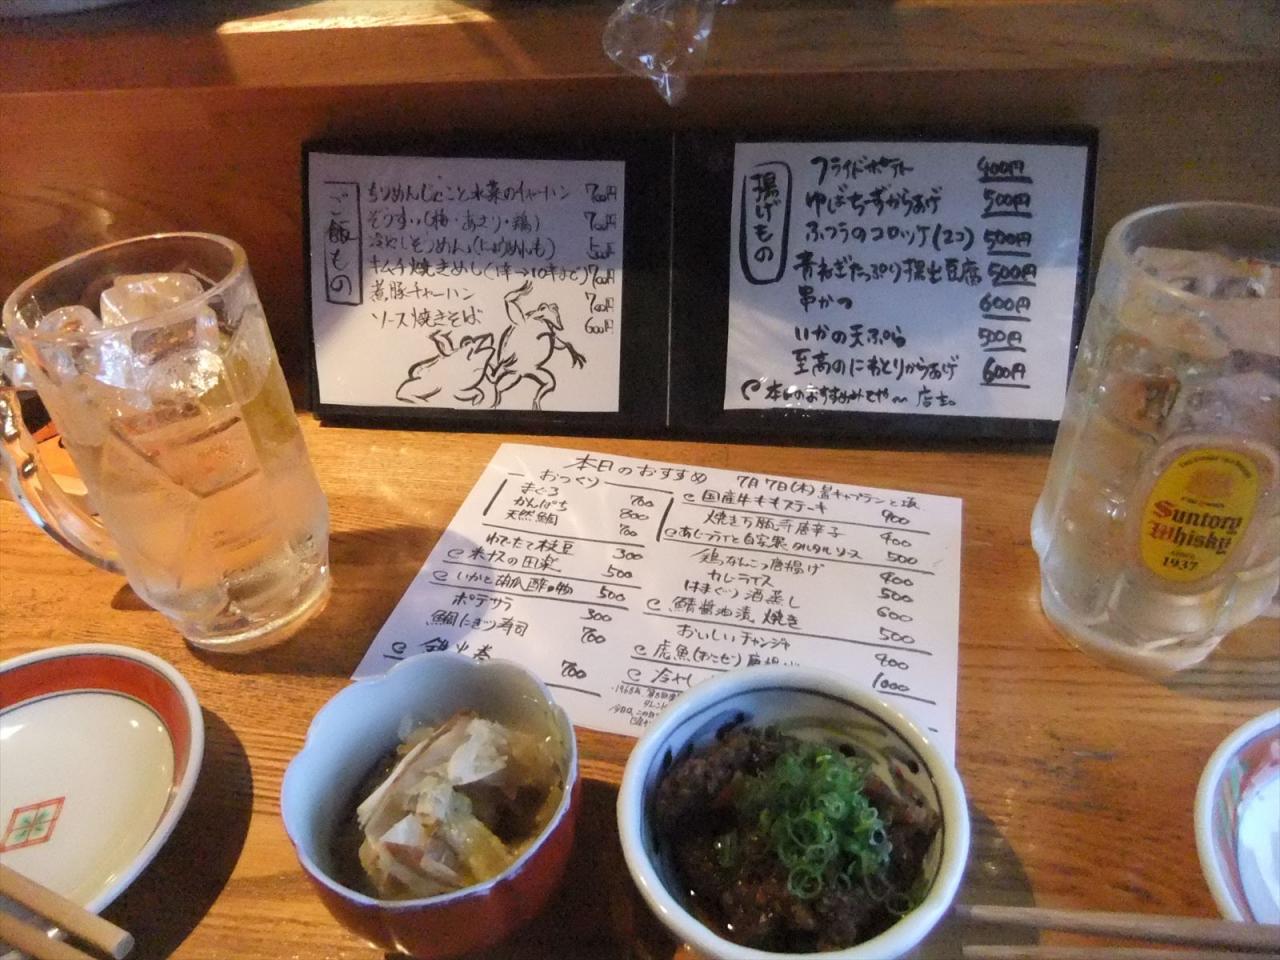 ご飯もの
ちりめんじゃこと水菜のチャーハン 700円
ぞうすい(梅・あさり・鶏) 700円
冷やしそうめん(にゅうめんも) 500円
キムチ焼きめし(1辛→10辛まで) 700円
煮豚チャーハン 700円
ソース焼きそば 600円
揚げもの
フライドポテト 400円
ゆばちーずからあげ 500円
ふつうのコロッケ(2コ) 500円
青ねぎたっぷり揚出豆腐 500円
串かつ 600円
いかの天ぷら 500円
至高のにわとりからあげ 600円
本日のおすすめみてや〜 店主。
本日のおすすめ 7月7日(木)
おつくり
まぐろ 700
かんぱち 800
天然鯛 700
ゆでたて枝豆 300
米ナスの田楽 500
いかと胡瓜酢の物 500
ポテサラ 300
鯛にぎり寿司 700
鉄火巻 700
国産牛ももステーキ 900
焼き万願寺唐辛子 400
あじフライと自家製タルタルソース 500
鶏なんこつ唐揚げ 400
カレーライス 500
はまぐり酒蒸し 600
鯖醤油漬焼き 500
おいしいチャンジャ 400
虎魚(おこぜ)唐揚げ 1000
冷やし
Suntory
Whisky
SINCE
1937